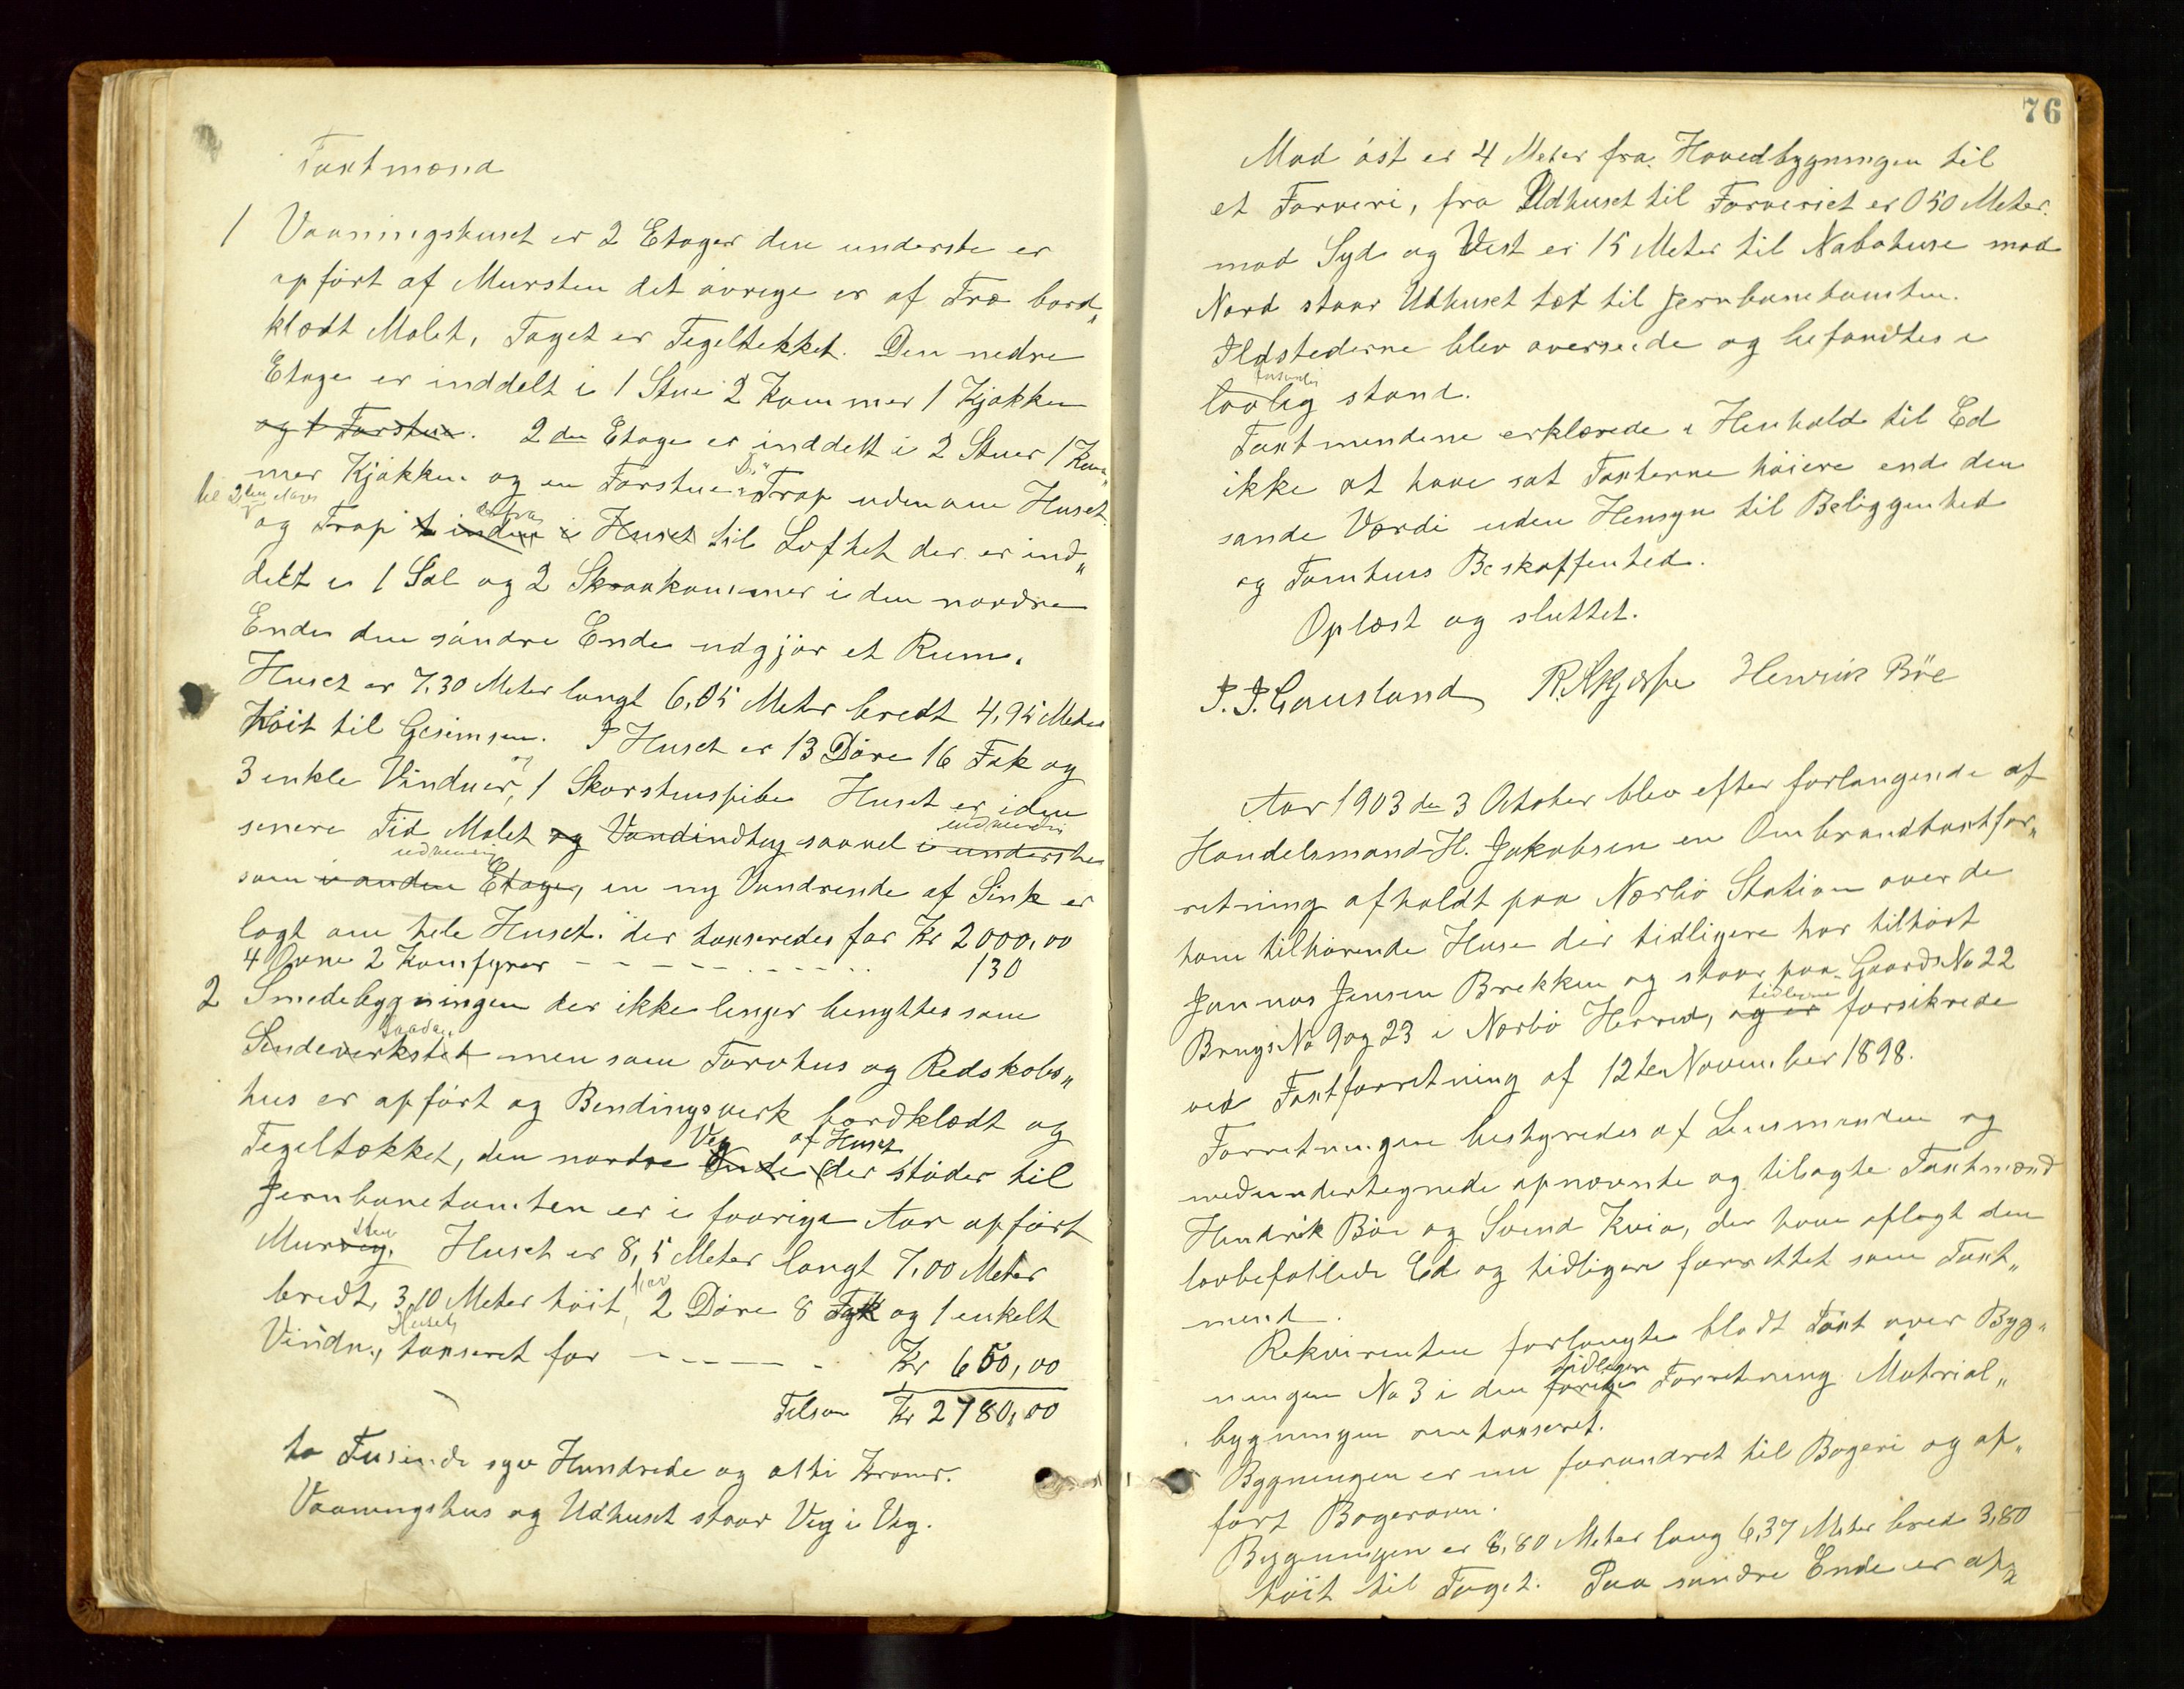 Taxtmænd
1 Vaaningshuset er 2 Etager den underste er
opført af Mursten det øvrige er af Træ bord„
klædt Malet, Taget er Tegeltekket. Den nedre
Etage er inddelt i 1 Stue 2 Kammer 1 Kjøkken
og 1 Forstue. 2den Etage er inddelt i 2 Stuer 1 Kam„
mer Kjøkken og en Forstue Trap udenom Huset
til 2den Etage
og Trap inden i Huset til Loftet der er ind„
delt i 1 Sal og 2 Skraakammer i den nordre
Ende den søndre Ende udgjør et Rum.
Huset er 7.30 Meter langt 6,05 Meter bredt 4,95 Meter
høit til Gesimsen. I Huset er 13 Døre 16 Fak og
3 enkle Vinduer, og 1 Skorstenspibe Huset er i den
senere Tid Malet og Vandindtag saavel i underste indvendig
som i anden Etage, udvendig en ny Vandrende af Sink er
lagt om hele Huset. der taxseredes for Kr 2000,00
4 Ovne 2 Komfyrer - - - - - - - - - 130
2 Smedebygningen der ikke lenger benyttes som
saadan
Smedeverksted men som Torvhus og Redskabs„
hus er opført og Bindingsverk bordklædt og
Tegeltækket, den nordre Ende Veg af Huset der støder til
Jernbanetomten er i forrige Aar opført
Murveg. sten Huset er 8,5 Meter langt 7,00 Meter
bredt, 3,10 Meter høit, har 2 Døre 8 Fak og 1 enkelt
Vindu, Huset taxseret for - - - - - Kr 650,00
Tilsam Kr 2780,00
to Tusinde syv Hundrede og otti Kroner.
Vaaningshus og Udhuset staar Veg i Veg.
76
Mod øst er 4 Meter fra Hovedbygningen til
et Farveri, fra Udhuset til Farveriet er 0 50 Meter.
mod Syd og Vest er 15 Meter til Nabohuse mod
Nord staar Udhuset tæt til Jernbanetomten.
Ildstederne blev overseede og befandtes i
forsvarlig
lovlig stand.
Taxtmendene erklærede i Henhold til Ed
ikke at have sat Taxterne høiere end den
sande Værdi uden Hensyn til Beliggenhed
og Tomtens Beskaffenhed.
Oplæst og sluttet.
P. J. Gausland R. Skjerpe Henrik Böe
Aar 1903 den 3 October blev efter forlangende af
Handelsmand H. Jakobsen en Ombrandtaxtfor„
retning afholdt paa Nærbø Station over de
ham tilhørende Huse der tidligere har tilhørt
Jonnas Jensen Brekken og staar paa Gaards No 22
Brugs No 9 og 23 i Nærbø Herred, og er tidligere forsikrede
ved Taxtforretning af 12ten November 1898.
Forretningen bestyredes af Lensmanden og
medundertegnede opnævnte og tilsagte Taxtmænd
Hendrik Böe og Svend Kvia, der have aflagt den
lovbefallede Ed og tidligere forrettet som Taxt„
mend.
Rekvirenten forlangte blodt Taxt over Byg„
ningen No 3 i den forrige tidligere Forretning Matrial„
bygningen omtaxseret.
Bygningen er nu forandret til Bageri og op„
ført Bagerovn.
Bygningen er 8,80 Meter lang 6,37 Meter bred 3,80
høit til Taget. Paa søndre Ende er op„